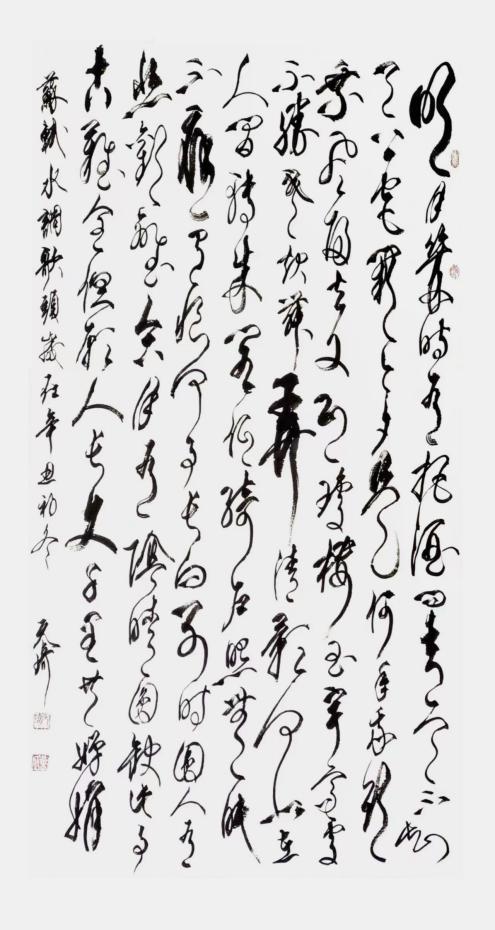 明月幾時有把酒問青天不知
天上宮闕今夕是何年我欲
乘風歸去又恐瓊樓玉宇高處
不勝寒起舞弄清影何似在
人間轉朱閣低綺戶照無眠
不應有恨何事長向別時圓人有
悲歡離合月有陰晴圓缺此事
古難全但願人長久千里共嬋娟
蘇軾水調歌頭歲在辛丑初冬